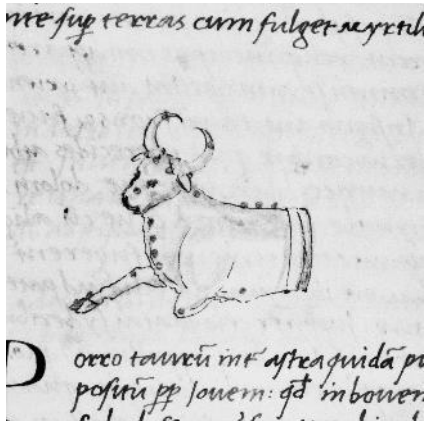 nte sup terras cum fulget myrtil
Porro taurū int astra quidā pu
positū pp Jovem: qd in bovem